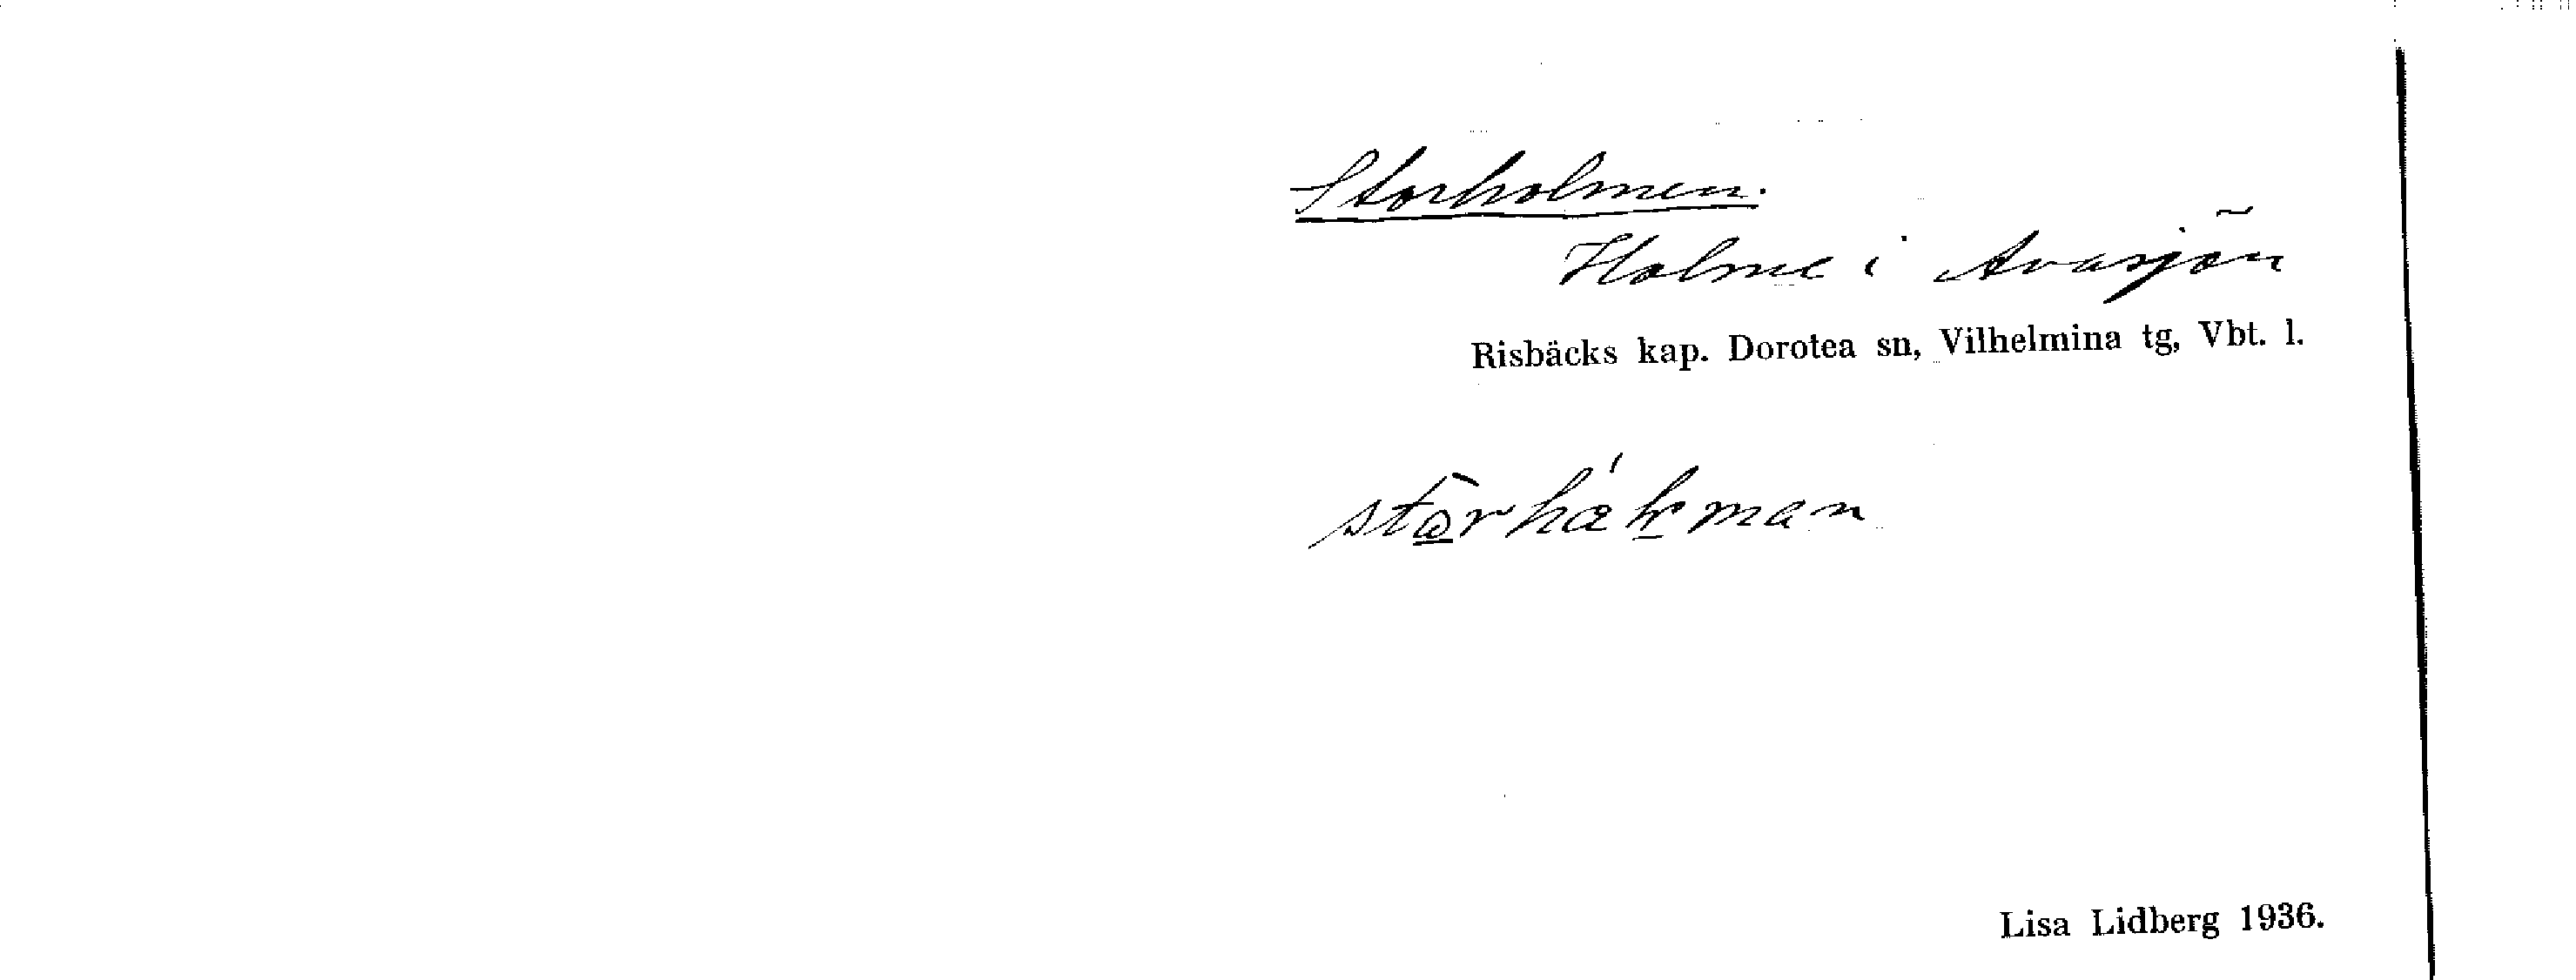 Storholmen.
Holme i Avasjön
Risbäcks kap. Dorotea sn, Vilhelmina tg, Vbt. l.
Lisa Lidberg 1936.